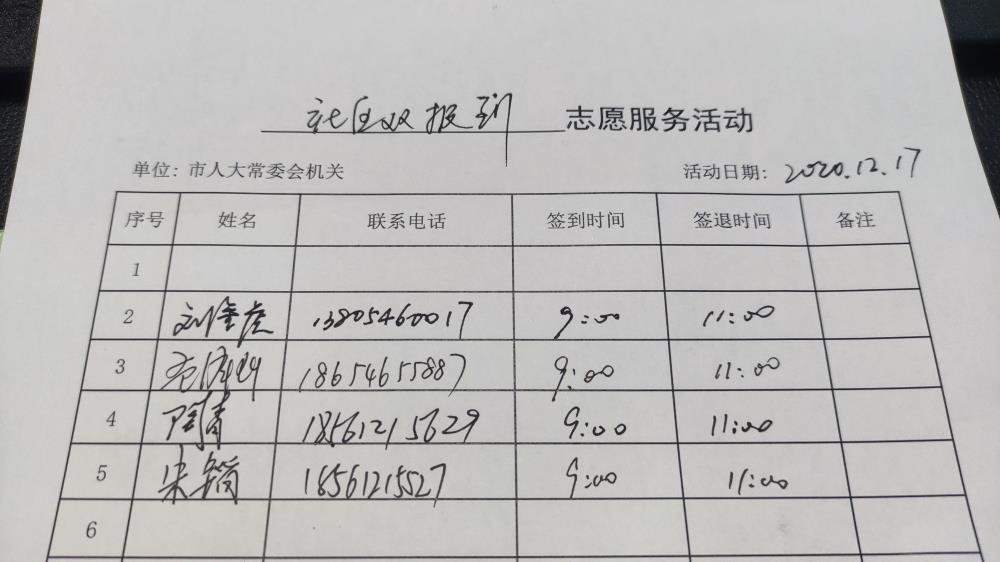 社区双报到 志愿服务活动
单位：市人大常委会机关 活动日期：2020.12.17
序号 姓名 联系电话 签到时间 签退时间 备注
1
2 刘金虎 13805460017 9:00 11:00
3 18654655887 9:00 11:00
4 陶青 18561215629 9:00 11:00
5 宋 18561215527 9:00 11:00
6